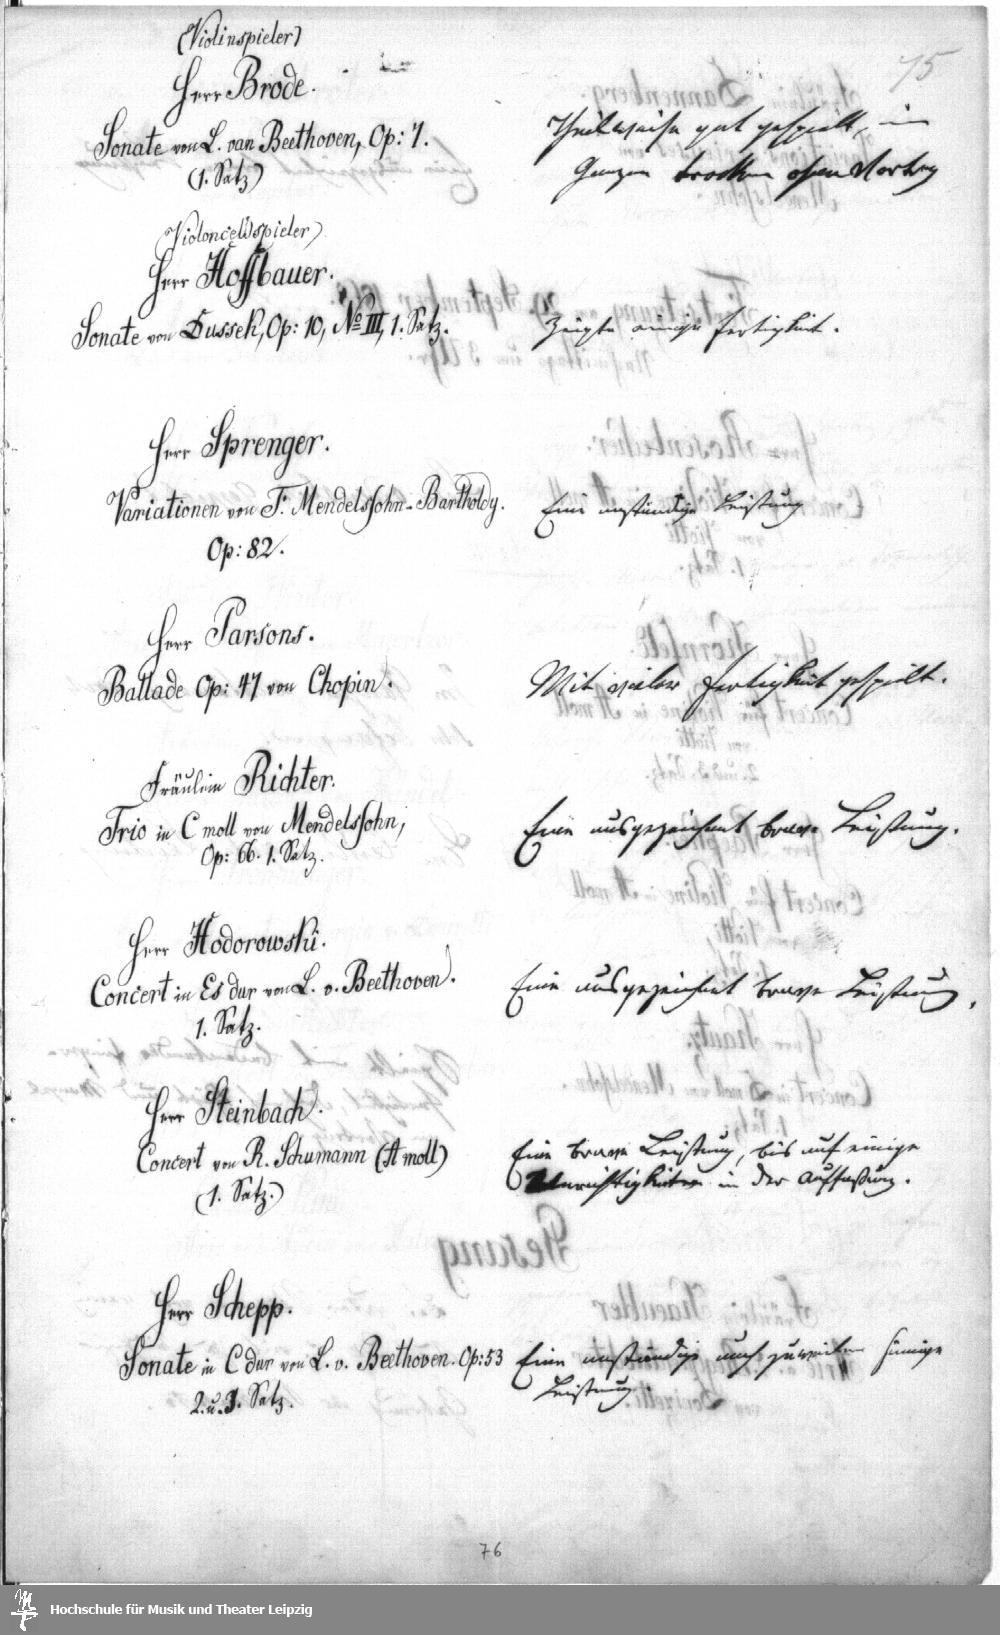 75
(Violinspieler)
Herr Brode.
Sonate von L. van Beethoven, Op: 7.
(1. Satz)
Theilweise gut gespielt, im
Ganzen trocken ohne Vortrag
(Violoncellspieler)
Herr Hoffbauer.
Sonate von Dussek, Op: 10, No III, 1. Satz.
Zeigte einige Fertigkeit.
Herr Sprenger.
Variationen von F. Mendelssohn-Bartholdy.
Op: 82.
Eine anständige Leistung
Herr Parsons.
Ballade Op: 47 von Chopin.
Mit vieler Fertigkeit gespielt.
Fräulein Richter.
Trio in C moll von Mendelssohn,
Op: 66. 1. Satz.
Eine ausgezeichnet brave Leistung.
Herr Hodorowski.
Concert in Es dur von L. v. Beethoven.
1. Satz.
Eine ausgezeichnet brave Leistung.
Herr Steinbach.
Concert von R. Schumann (A moll)
(1. Satz.)
Eine brave Leistung, bis auf einige
Unrichtigkeiten in der Auffassung.
Herr Schepp.
Sonate in C dur von L. v. Beethoven. Op: 53
2. u. 3. Satz.
Eine anständige auch zuweilen sinnige
Leistung.
76
Hochschule für Musik und Theater Leipzig